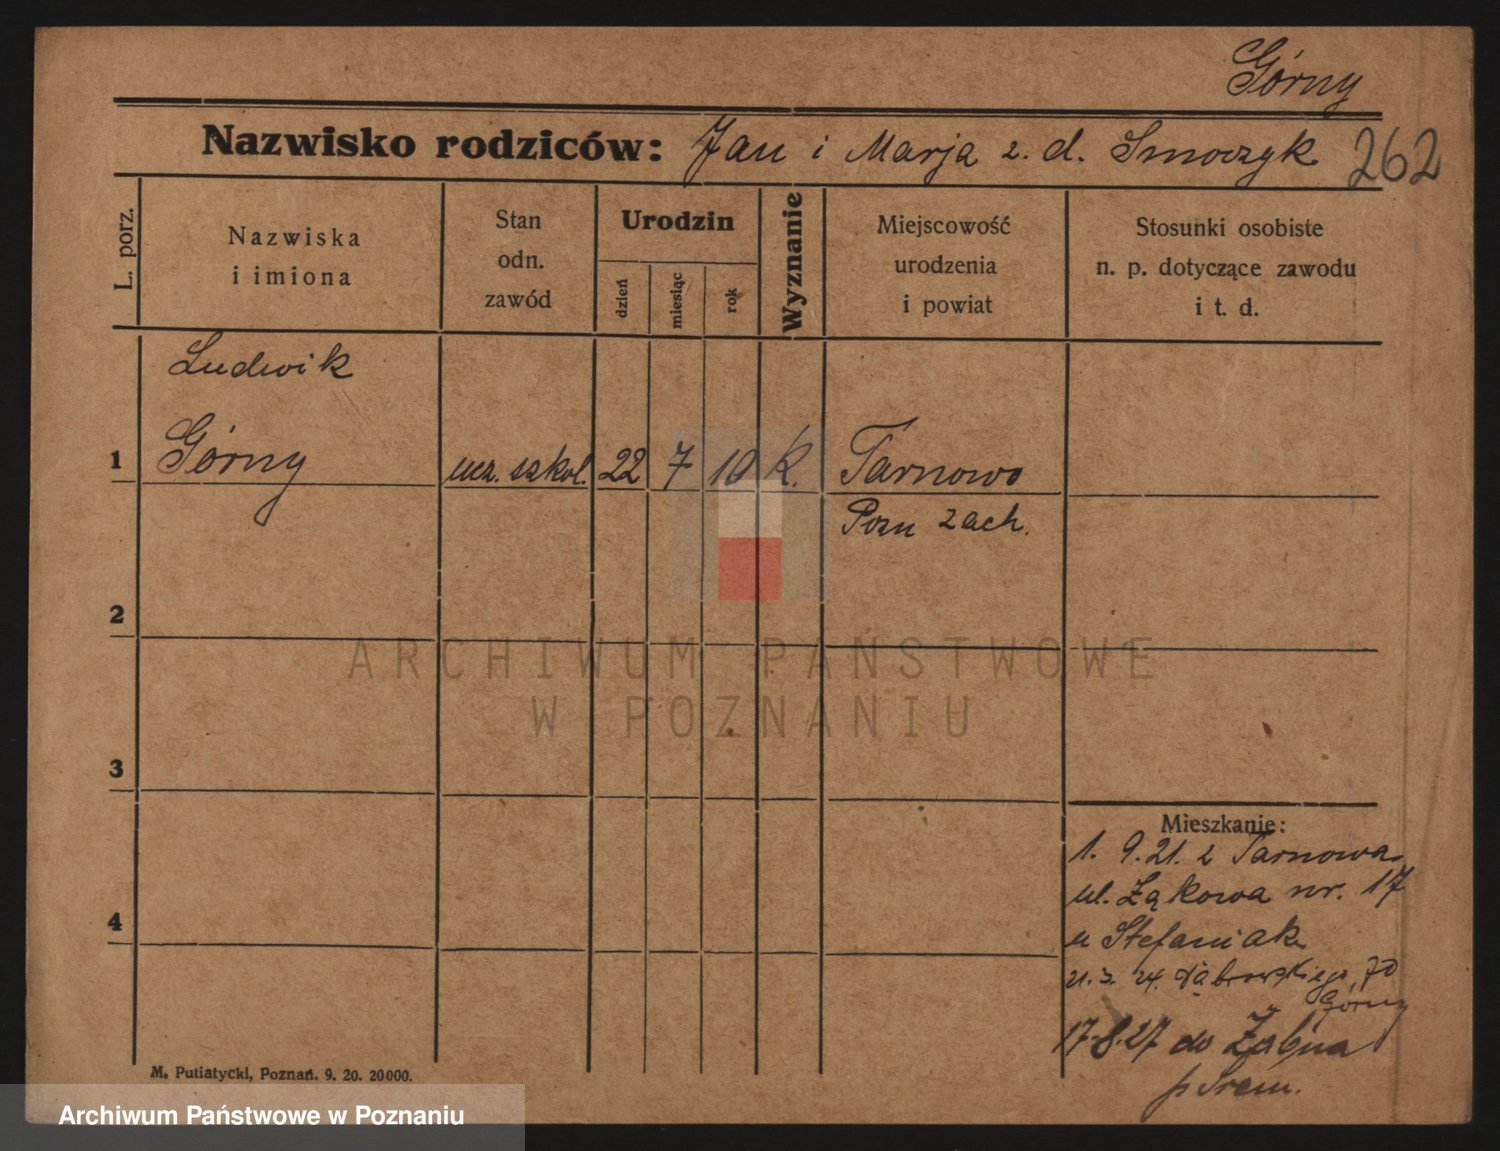 Górny
Nazwisko rodziców: Jan i Marja z. d. Smoczyk 262
L. porz.
Nazwiska
i imiona
Stan
odn.
zawód
Urodzin
dzień
miesiąc
rok
Wyznanie
Miejscowość
urodzenia
i powiat
Stosunki osobiste
n. p. dotyczące zawodu
i t. d.
Ludwik
1 Górny ucz. szkol. 22 7 10 K. Tarnowo
Pozn zach.
2
3
4
ARCHIWUM PAŃSTWOWE
W POZNANIU
Mieszkanie:
1. 9. 21. z Tarnowa
ul. Łąkowa nr. 17
u Stefaniak
21. 3. 24. Dąbrowskiego 70
Górny
17.8.27 do Żabna
p Śrem.
M. Putiatycki, Poznań. 9. 20. 20000.
Archiwum Państwowe w Poznaniu